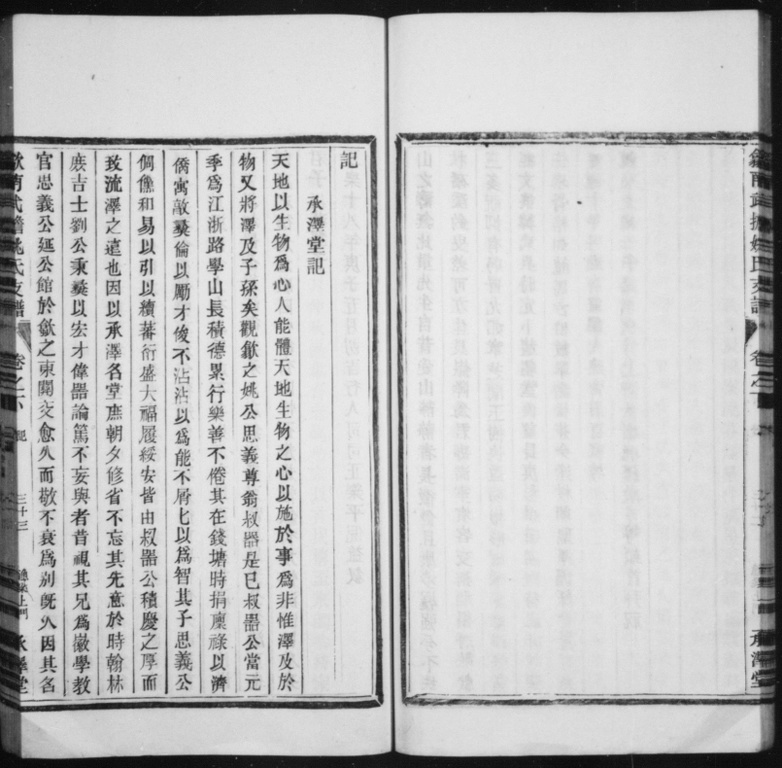 記
承澤堂記
天地以生物爲心人能體天地生物之心以施於事爲非惟澤及於
物又將澤及子孫矣觀歙之姚公思義尊翁叔器是已叔器公當元
季爲江浙路學山長積德累行樂善不倦其在錢塘時捐廩祿以濟
僑寓敦彝倫以勵才俊不沾沾以爲能不屑屑以爲智其子思義公
倜儻和易以引以續蕃衍盛大福履綏安皆由叔器公積慶之厚而
致流澤之遠也因以承澤名堂庶朝夕修省不忘其先意於時翰林
庶吉士劉公秉彝以宏才偉器論篤不妄與者昔視其兄爲徽學教
官思義公延公館於歙之東關交愈久而敬不衰爲别旣久因其名
歙南武擔姚氏支譜
卷之
記
三十三
承澤堂
歙南武擔姚氏支譜
卷之
承澤堂